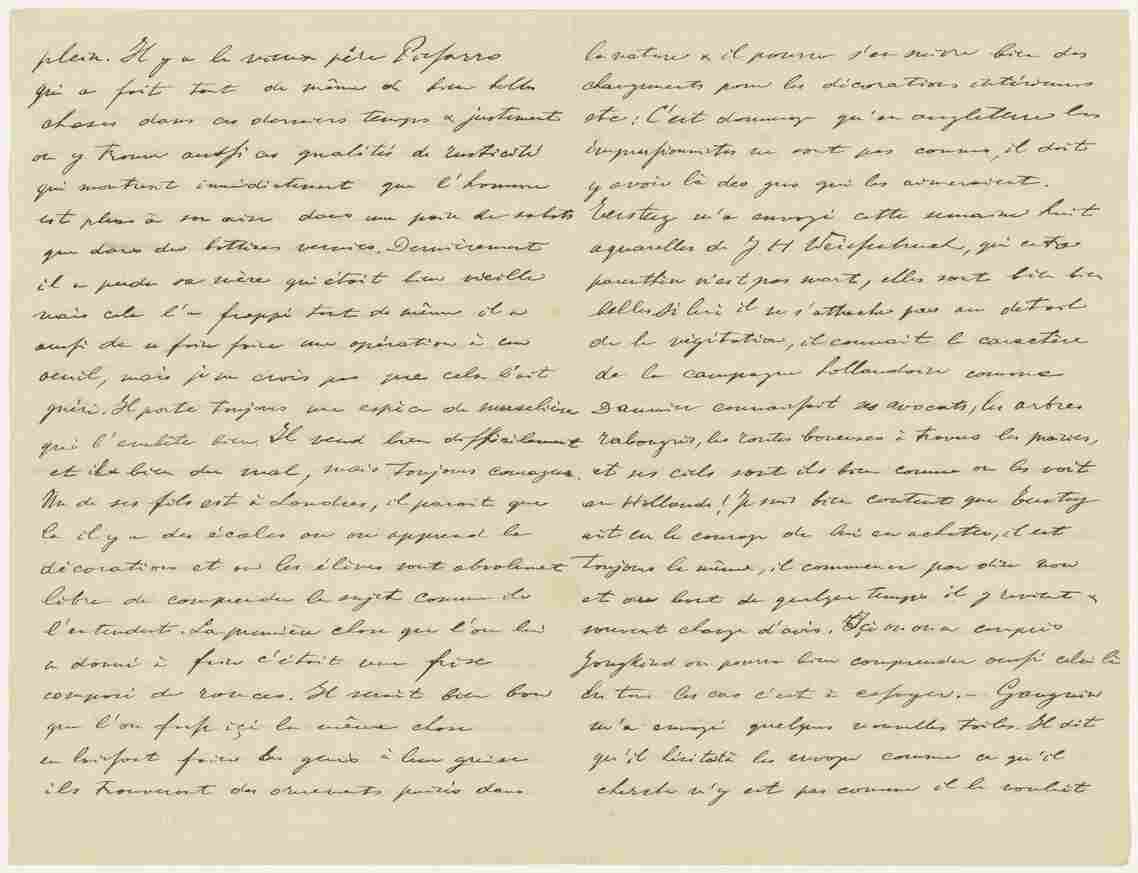 plein. Il y a le vieux père Pissarro
qui a fait tout de même de bien belles
choses dans ces derniers temps & justement
on y trouve aussi ces qualités de rusticité
qui montrent immédiatement que l'homme
est plus à son aise dans une paire de sabots
que dans des bottines vernies. Dernièrement
il a perdu sa mère qui était bien vieille
mais cela l'a frappé tout de même il a
aussi dû se faire faire une opération à un
oeuil, mais je ne crois pas que cela l'ait
guéri. Il porte toujours une espèce de muselière
qui l'embête bien. Il vend bien difficilement
et il a bien du mal, mais toujours courageux.
Un de ses fils est à Londres, il parait que
là il y a des écoles où on apprend la
décorations et où les élèves sont absolument
libre de comprendre le sujet comme ils
l'entendent. La première chose que l'on lui
a donné à faire c'était une frise
composé de ronces. Il serait bien bon
que l'on fasse içi la même chose
en laissant faire les gens à leur guise
ils trouveront des ornements puisés dans
la nature & il pourra s'en suivre bien des
changements pour les décorations intérieures
etc: C'est dommage qu'en angleterre les
impressionnistes ne sont pas connus, il doit
y avoir là des gens qui les aimeraient.
Tersteeg m'a envoyé cette semaine huit
aquarelles de J H Weissenbruch, qui entre
parenthèse n'est pas mort, elles sont bien bien
belles Si lui il ne s'attache pas au détail
de la végétation, il connait le caractère
de la campagne hollandaise comme
Daumier connaissait ses avocats, les arbres
rabougris, les routes boueuses à travers les prairies,
et ses ciels sont ils bien comme on les voit
en Hollande! Je suis bien content que Tersteeg
ait eu le courage de lui en acheter, il est
toujours le même, il commence par dire non
et au bout de quelque temps il y revient &
souvent change d'avis. Içi où on a compris
Jongkind on pourra bien comprendre aussi celui là
En tous les cas c'est à essayer. – Gauguin
m'a envoyé quelques nouvelles toiles. Il dit
qu'il hésitât à les envoyer comme ce qu'il
cherche n'y est pas comme il le voudrait